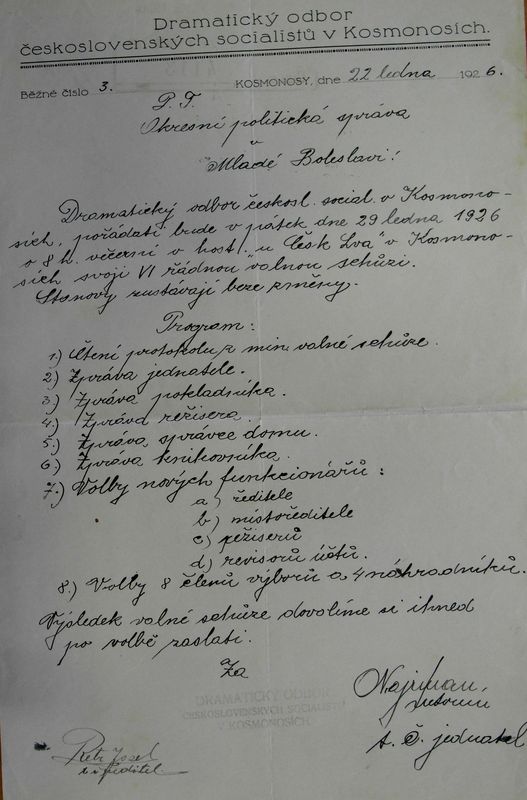 Dramatický odbor
československých socialistů v Kosmonosích.
Běžné číslo 3. KOSMONOSY, dne 22 ledna 1926.
P. T.
Okresní politická správa
v
Mladé Boleslavi!
Dramatický odbor českosl. social. v Kosmono-
sích, pořádati bude v pátek dne 29 ledna 1926
o 8 h. večerní v host. „u Česk Lva" v Kosmono-
sích svoji VI řádnou valnou schůzi.
Stanovy zustávají beze změny.
Program:
1.) Čtení protokolu z min. valné schůze.
2.) Zpráva jednatele.
3.) Zpráva pokladníka.
4.) Zpráva režisera.
5.) Zpráva správce domu.
6.) Zpráva knihovníka.
7.) Volby nových funkcionářů:
a) ředitele
b) místoředitele
c) režiserů
d) revisorů účtů.
8.) Volby 8 členů výborů a 4 náhradníků.
Výsledek valné schůze dovolíme si ihned
po volbě zaslati.
Za
DRAMATICKÝ ODBOR
ČESKOSLOVENSKÝCH SOCIALISTŮ
V KOSMONOSÍCH
t. č. jednatel
Petr
ředitel.